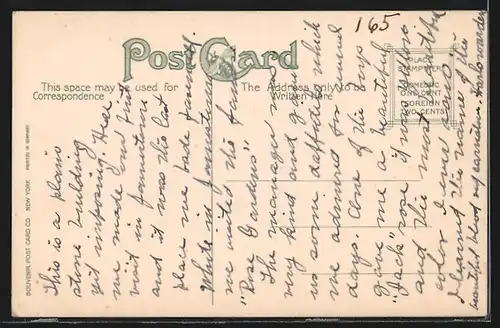 165
POST CARD
This space may be used for Correspondence
The Address only to be Written here
PLACE STAMP HERE
DOMESTIC ONE CENT
FOREIGN TWO CENTS
SOUVENIR POST CARD CO. NEW YORK PRINTED IN GERMANY
This is a plain
stone building
yet imposing. Here
we made our first
visit in Jamestown
and it was the last
place we bade farewell.
While in Jamestown
we visited the famous
"Rose Gardens"
The manager was
very kind and gave
us some daffodils which
we admired for several
days. One of the boys
gave me a beautiful
"Jack" rose it was a
and the most beautiful
color I ever saw
I learned the name of the
beautiful